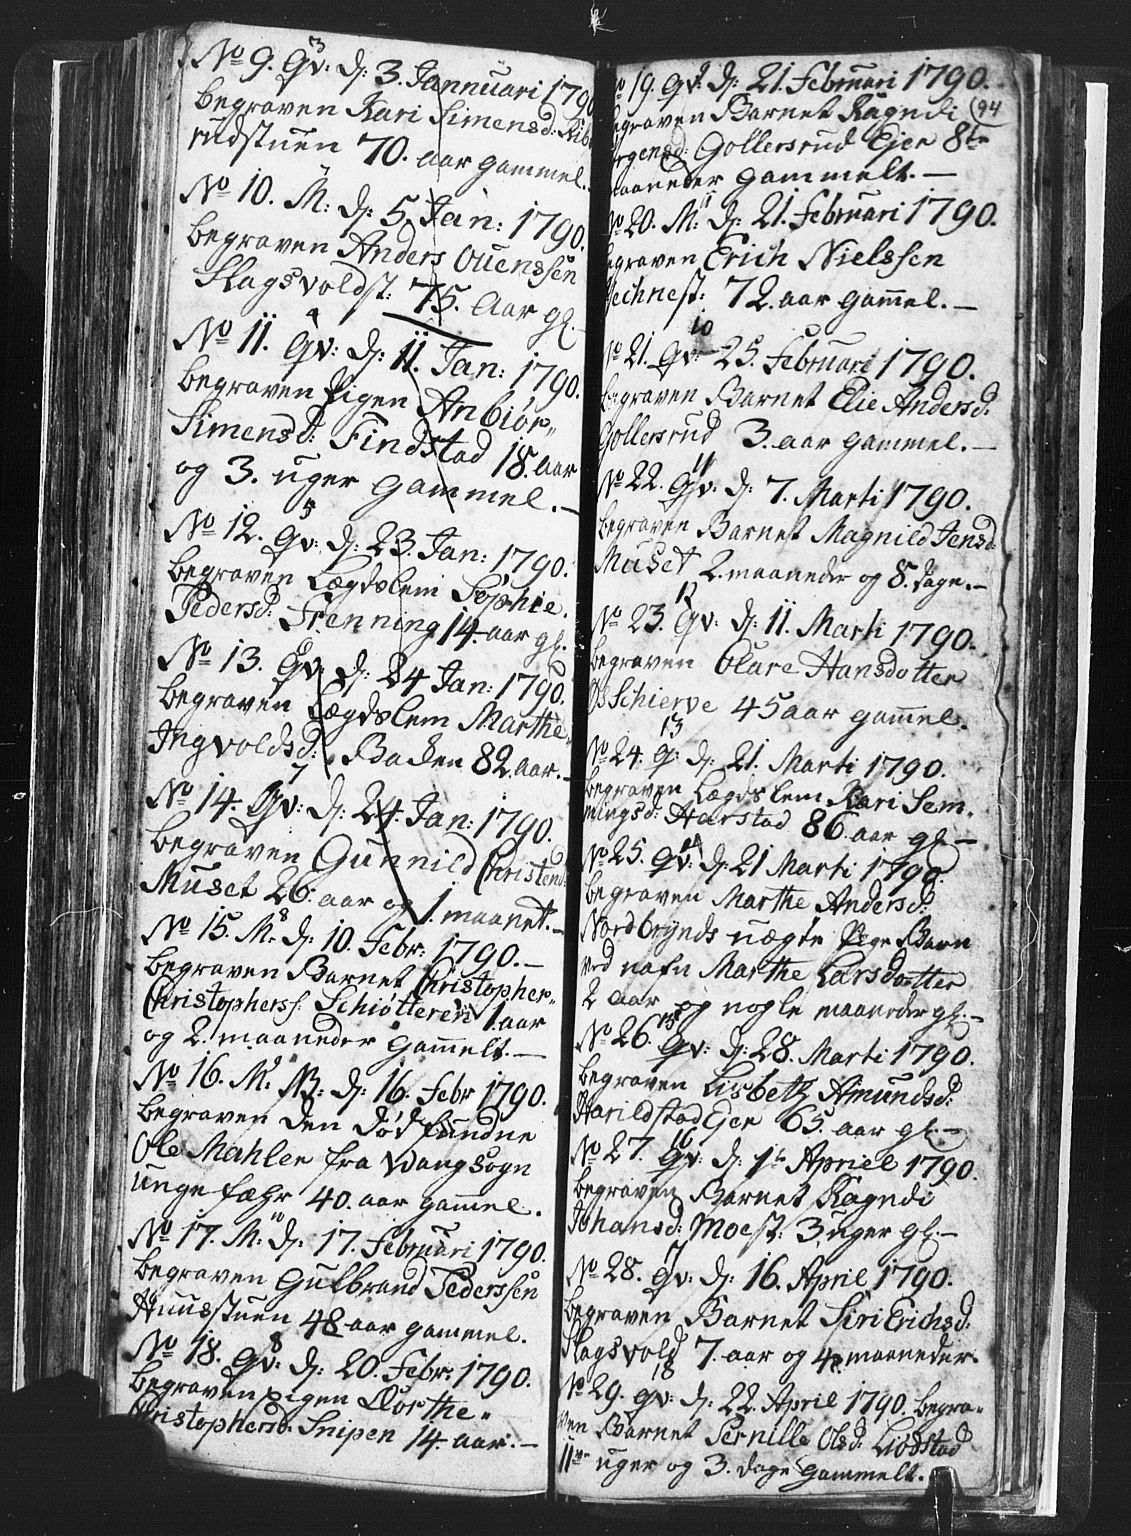 No 9. Qv: d: 3. Jannuari 1790
3
begraven Kari Simensd: Kib
rudstuen 70. aar gammel.
No 10. M: d: 5. Jan: 1790.
begraven Anders Ouenssen
Slagsvoldst: 75. Aar gl.
4
No 11. Qv: d: 11. Jan: 1790.
begraven Pigen Anbiør-
Simensd: Findstad 18. aar
og 3. uger gammel. —
5
No 12. Qv: d: 23. Jan: 1790.
begraven Lægdslem Sophie
Pedersd: Frenning 14. aar gl.
6
No 13. Qv: d: 24 Jan: 1790.
begraven Lægdslem Marthe
Ingvoldsd: Bakken 82. aar. —
7
No 14. Qv: d: 24. Jan: 1790.
begraven Gunnild Christend:
Muset 26. aar og 1. maanet. —
8
No 15. M. d: 10. Febr: 1790. —
begraven Barnet Christopher-
Christophers: Schiøtteren 1. aar
og 2. maaneder gammelt. —
9
No 16. M. N3. d: 16. Febr 1790.
begraven den dødfundne
Ole Mahler fra Vang sogn
unge fæhr 40. aar gammel.
10
No 17. M: d: 17. Februari 1790.
begraven Gulbrand Pederssen
Huusstuen 48 aar gammel.
8
No 18. Qv: d: 20. Febr: 1790.
begraven Pigen Dorthe-
Christophersd: Snipen 14. aar. —
94
9
No 19. Qv: d: 21. Februari 1790.
begraven Barnet Ragndi
Jørgensd: Gollersrud Ejer 8te
maaneder gammelt. —
11
No 20. M: d: 21. Februari 1790.
begraven Erich Nielssen
72. aar gammel. —
10
No 21. Qv: 25. Februari 1790.
begraven Barnet Elie Andersd:
Gollersrud 3. aar gammel. —
11
No 22. Qv: d: 7. Marti 1790.
begraven Barnet Magnild Jensd
Muset 2. maaneder og 8. dage. —
12
No 23. Qv: d: 11. Marti 1790.
begraven Clare Hansdotter
Schierve 45 aar gammel.
13
No 24. Q: d: 21. Marti 1790.
begraven Lægdslem Kari Sem-
mingsd: Harstad 86. aar gl —
14
No 25. Qv: d: 21 Marti 1790.
begraven Marthe Andersd:
Nordbrynds uægte Pige Barn
ved nafn Marthe Larsdotter
2 aar og nogle maaneder gl. —
15
No 26. Qv: d: 28. Marti 1790.
begraven Lisbeth Amundsd:
Harildstad Ejer 65. aar gl. —
16
No 27. Qv: d: 1te Apriel 1790.
begraven Barnet Ragndi
Johansd: Moest: 3. uger gl. —
17
No 28. Qv: d: 16. April 1790.
begraven Barnet Siri Erichsd:
Slagsvold 7. aar og 4. maaneder.
18
No 29. Qv: d: 22. April 1790. begra-
ven Barnet Pernille Olsd: Lidstad
11ve uger og 3. dage gammelt.